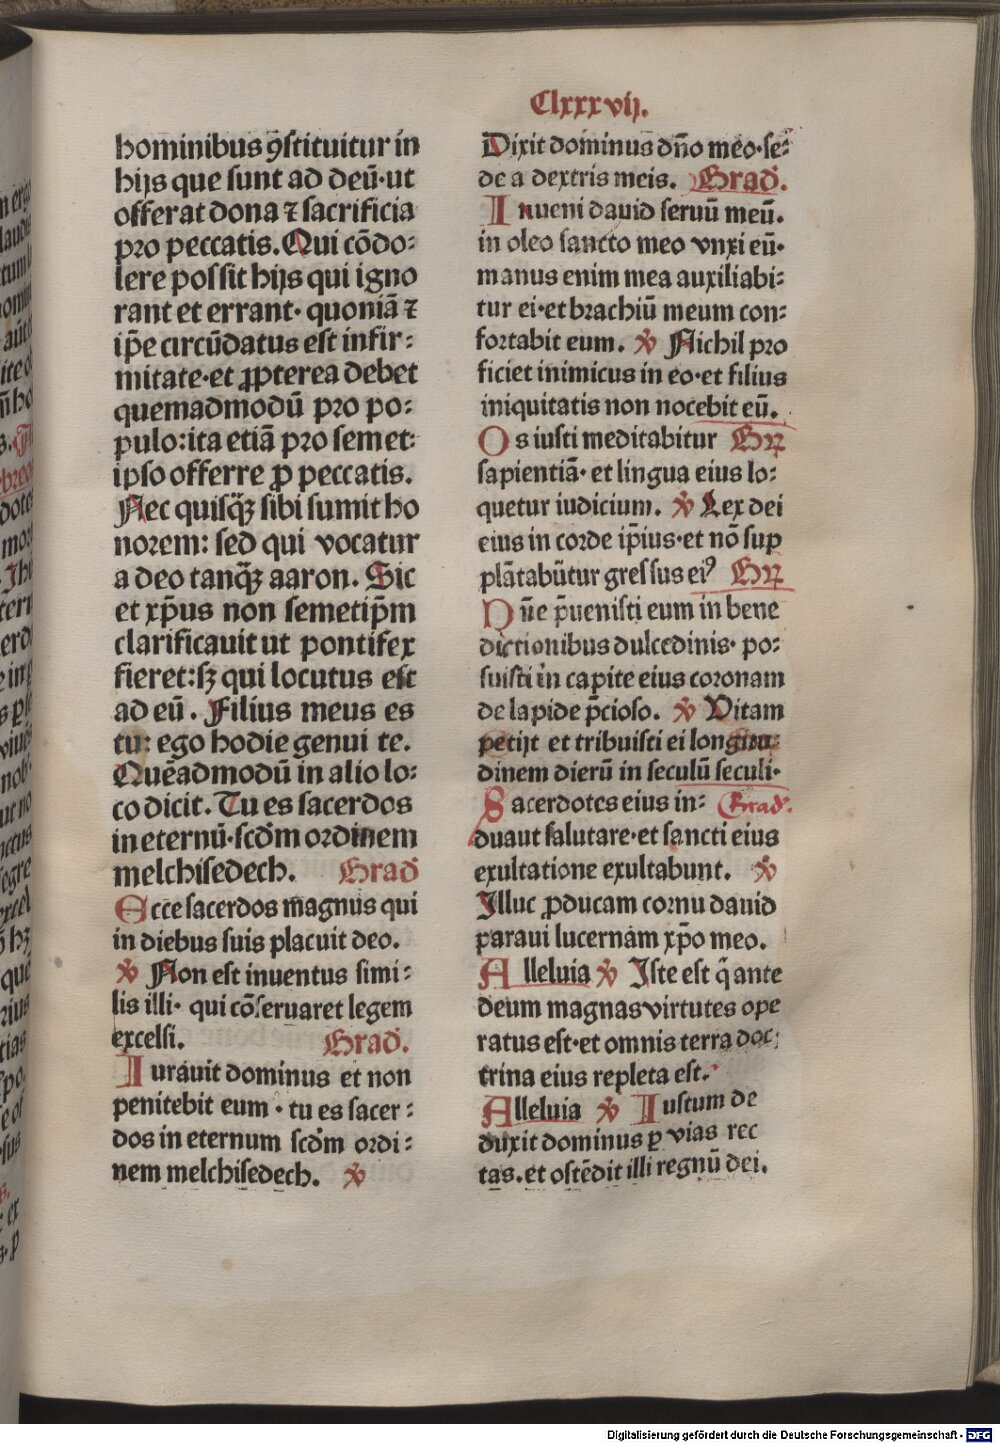 Clxxxvij.
hominibus ꝯstituitur in
hijs que sunt ad deū·ut
offerat dona ⁊ sacrificia
pro peccatis. Qui cōdo:
lere possit hijs qui igno
rant et errant· quoniā ⁊
ip̄e circūdatus est infir:
mitate·et ꝓpterea debet
quemadmodū pro po:
pulo:ita etiā pro semet:
ipso offerre ꝓ peccatis.
Nec quisq̄ꝫ sibi sumit ho
norem: sed qui vocatur
a deo tanq̄ꝫ aaron. Sic
et xp̄us non semetip̄m
clarificauit ut pontifex
fieret:sꝫ qui locutus est
ad eū. Filius meus es
tu: ego hodie genui te.
Quēadmodū in alio lo:
co dicit. Tu es sacerdos
in eternū·scd̄m ordinem
melchisedech. Grad̄
Ecce sacerdos magnus qui
in diebus suis placuit deo.
℣ Non est inuentus simi:
lis illi· qui cōseruaret legem
excelsi. Grad̄.
Iurauit dominus et non
penitebit eum· tu es sacer:
dos in eternum scd̄m ordi:
nem melchisedech. ℣
Dixit dominus dn̄o meo·se:
de a dextris meis. Grad̄.
Inueni dauid seruū meū.
in oleo sancto meo vnxi eū·
manus enim mea auxiliabi:
tur ei·et brachiū meum con:
fortabit eum. ℣ Nichil pro
ficiet inimicus in eo·et filius
iniquitatis non nocebit eū.
Os iusti meditabitur Gꝶ
sapientiā· et lingua eius lo:
quetur iudicium. ℣ Lex dei
eius in corde ip̄ius·et nō sup
plātabūtur gressus eiꝰ Gꝶ
Dn̄e p̄uenisti eum in bene
dictionibus dulcedinis· po:
suisti in capite eius coronam
de lapide p̄cioso. ℣ Vitam
petijt et tribuisti ei longitu:
dinem dierū in seculū seculi·
Sacerdotes eius in: Grad̄.
duaut salutare·et sancti eius
exultatione exultabunt. ℣
Illuc ꝓducam cornu dauid
paraui lucernam xp̄o meo.
Alleluia ℣ Iste est q̄ ante
deum magnas virtutes ope
ratus est·et omnis terra doc:
trina eius repleta est.
Alleluia ℣ Iustum de
duxit dominus ꝑ vias rec
tas. et ostēdit illi regnū dei.
Digitalisierung gefördert durch die Deutsche Forschungsgemeinschaft - DFG